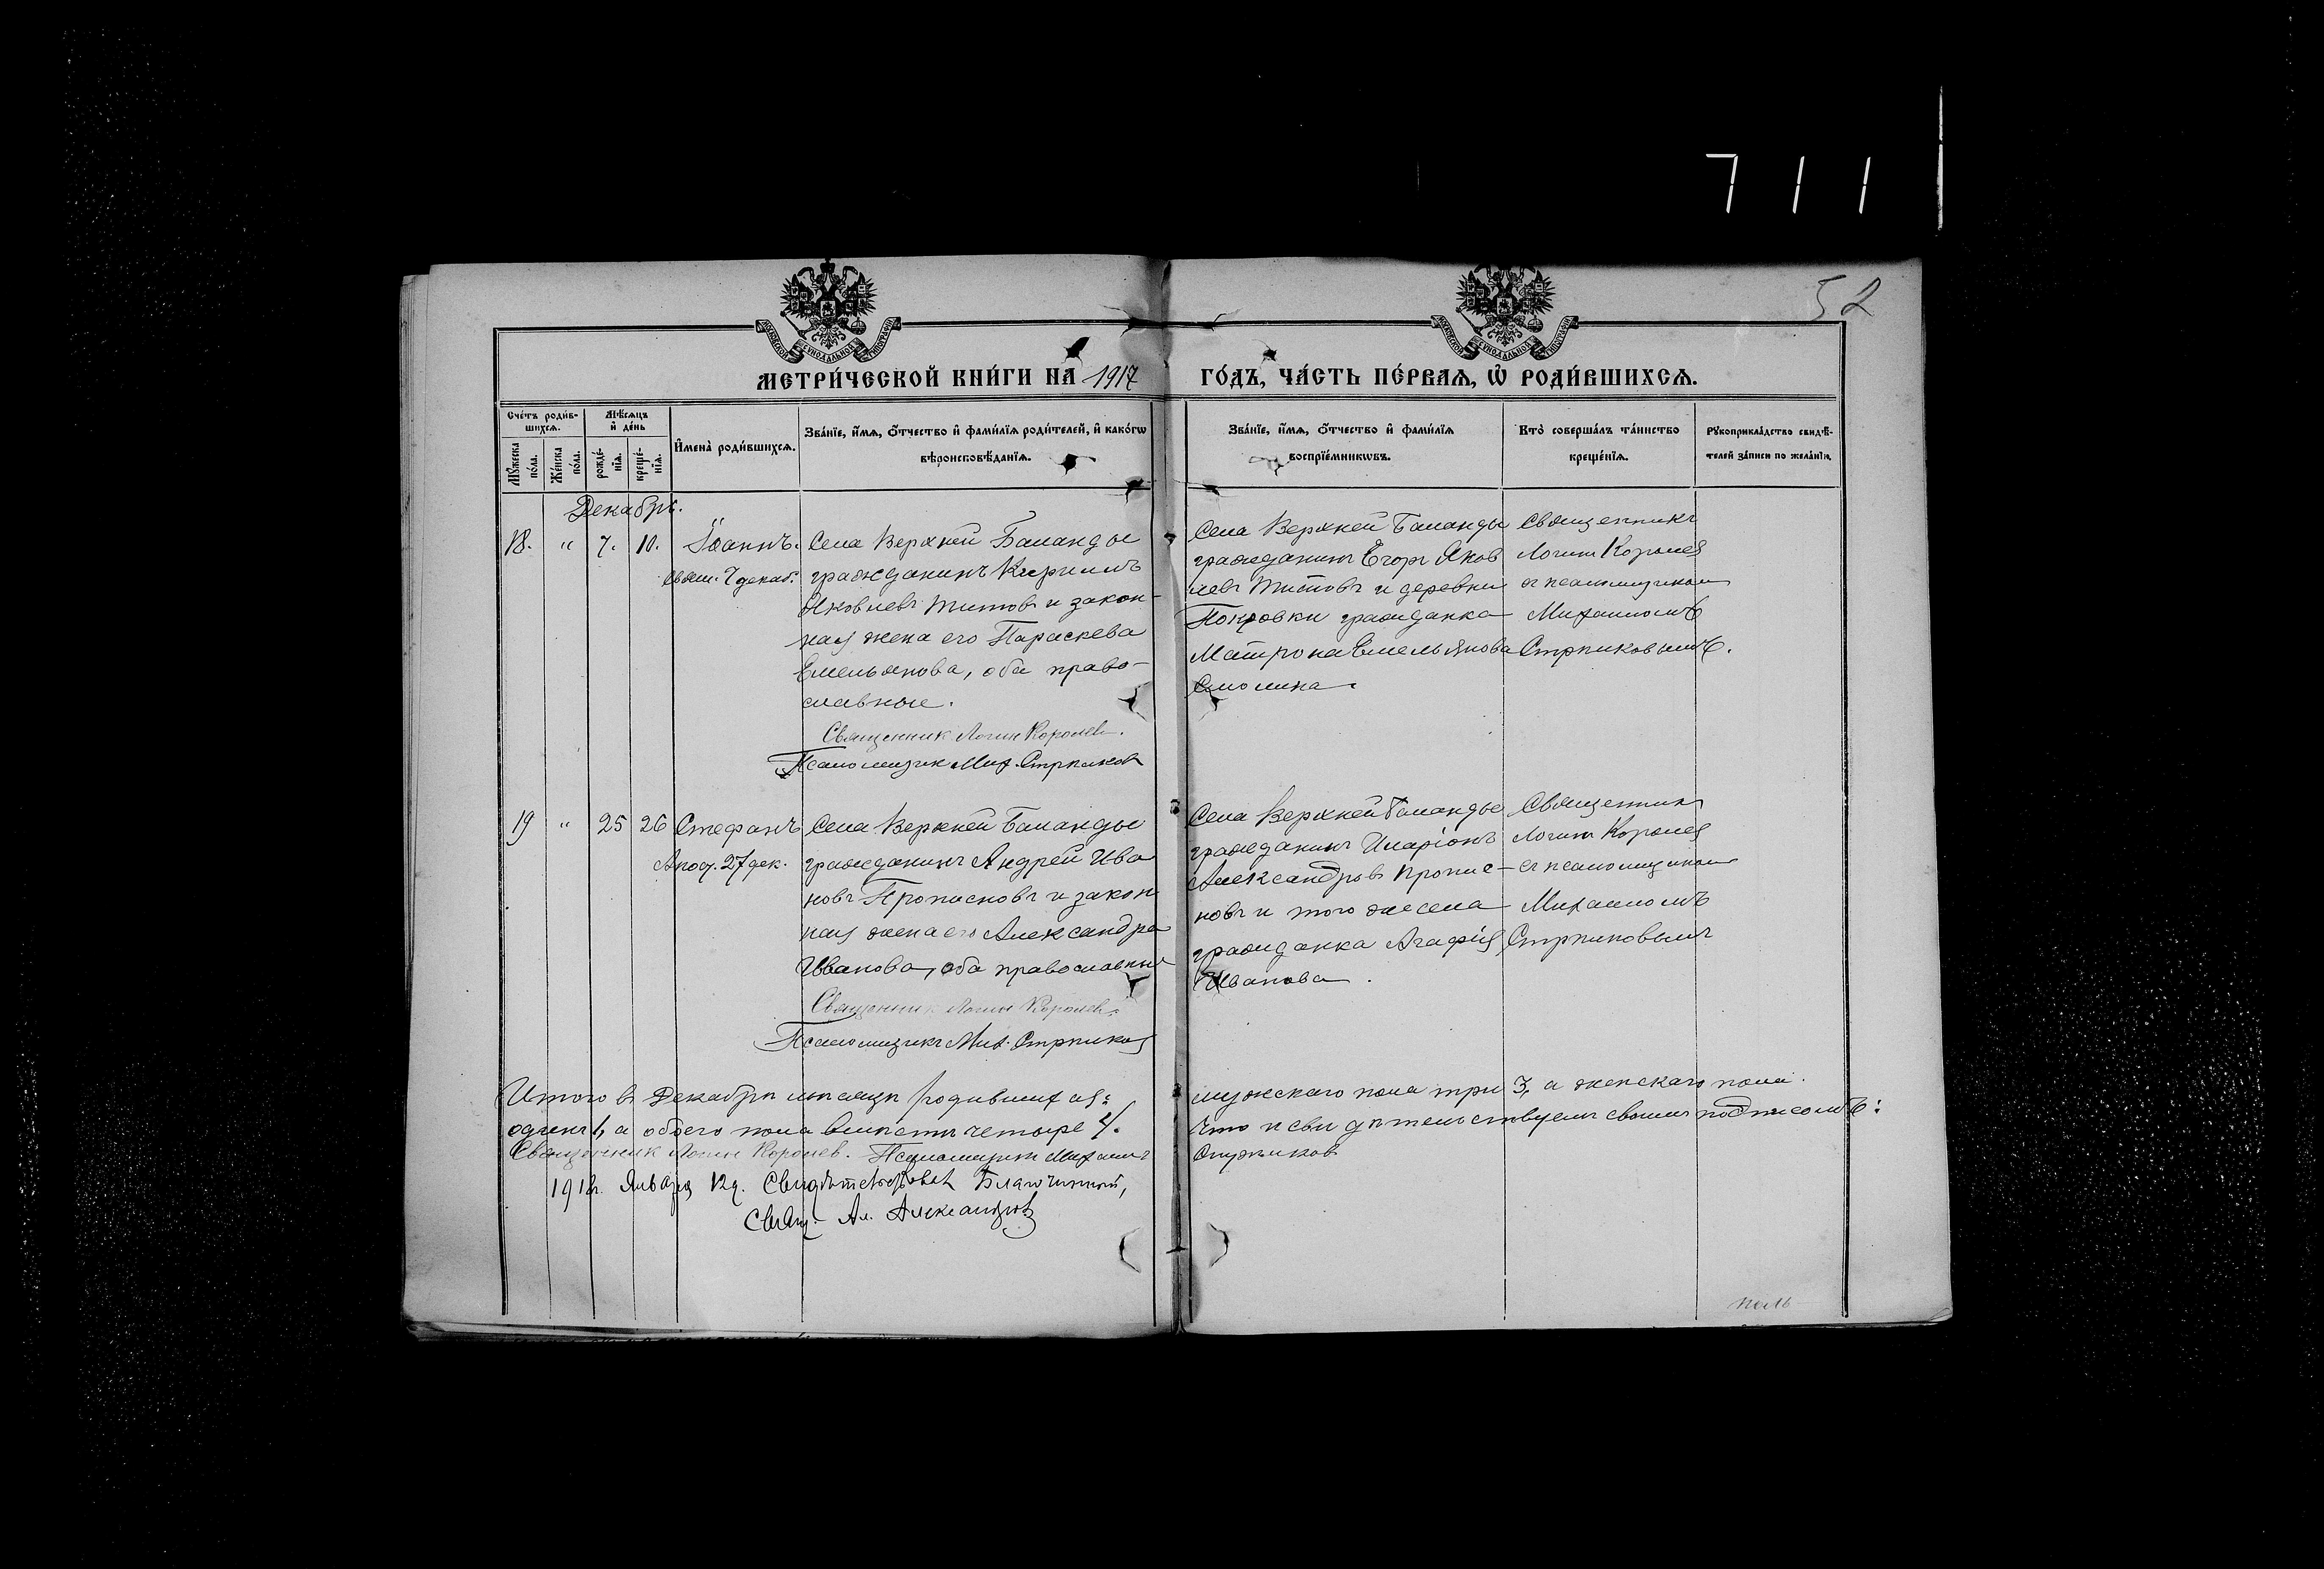 711
52
МОСКОВСКОЙ СУНОДАЛЬНОЙ ТИПОГРАФІИ
МОСКОВСКОЙ СУНОДАЛЬНОЙ ТИПОГРАФІИ
МЕТРИ́ЧЕСКОЙ КНИ́ГИ НА 1917 ГО́ДЪ, ЧА́СТЬ ПЕ́РВАѦ, Ѡ҆ РОДИ́ВШИХСѦ.
Сче́тъ роди́в-
шихсѧ.
Мꙋ́жеска
по́ла.
Же́нска
по́ла.
Мѣ́сѧцъ
и҆ де́нь
рожде́-
нїѧ.
креще́-
нїѧ.
И҆мена̀ роди́вшихсѧ.
Зва́нїе, и҆́мѧ, ѻ҆́тчество и҆ фами́лїѧ роди́телей, и҆ како́гѡ
вѣроисповѣ́данїѧ.
Зва́нїе, и҆́мѧ, ѻ҆́тчество и҆ фами́лїѧ
воспрїе́мникѡвъ.
Кто̀ соверша́лъ та́инство
креще́нїѧ.
Рꙋкоприкла́дство свидѣ́-
телей за́писи по жела́нїю.
Декабрь.
18. " 7. 10. Іоаннъ.
7 декаб.
Села Верхней Баланды
гражданинъ Кириллъ
Яковлевъ Титовъ и закон-
ная жена его Параскева
Емельянова, оба право-
славные.
Священник Логин Королев.
Псаломщик Мих. Стрпиков
Села Верхней Баланды
гражданинъ Егоръ Яков
левъ Титовъ и деревни
Покровки гражданка
Матрона Емельянова
Смолина.
Священникъ
Логин Королев
съ псаломщиком
Михаиломъ
Стрпиковымъ.
19 " 25 26 Стефанъ
27 дек.
Села Верхней Баланды
гражданинъ Андрей Ива
новъ Прописновъ и закон
ная жена его Александра
Иванова, оба православные
Священник Логин Королев.
Псаломщикъ Мих. Стрпиков
Села Верхней Баланды
гражданинъ Иларіонъ
Александровъ Пропис-
новъ и того же села
гражданка Агафія
Иванова.
Священник
Логин Королев
съ псаломщиком
Михаиломъ
Стрпиковымъ
Итого въ Декабрѣ мѣсяцѣ родившихся: мужскаго пола три 3, а женскаго пола
одинъ 1, а обоего пола вмѣстѣ четыре 4. Что и свидѣтельствуемъ своимъ подписомъ:
Священник Логин Королев. Псаломщикъ Михаилъ Стрпиков
1918г. Января 12д. Свидѣтельствовал Благочинный,
Свящ. Ал. Александров